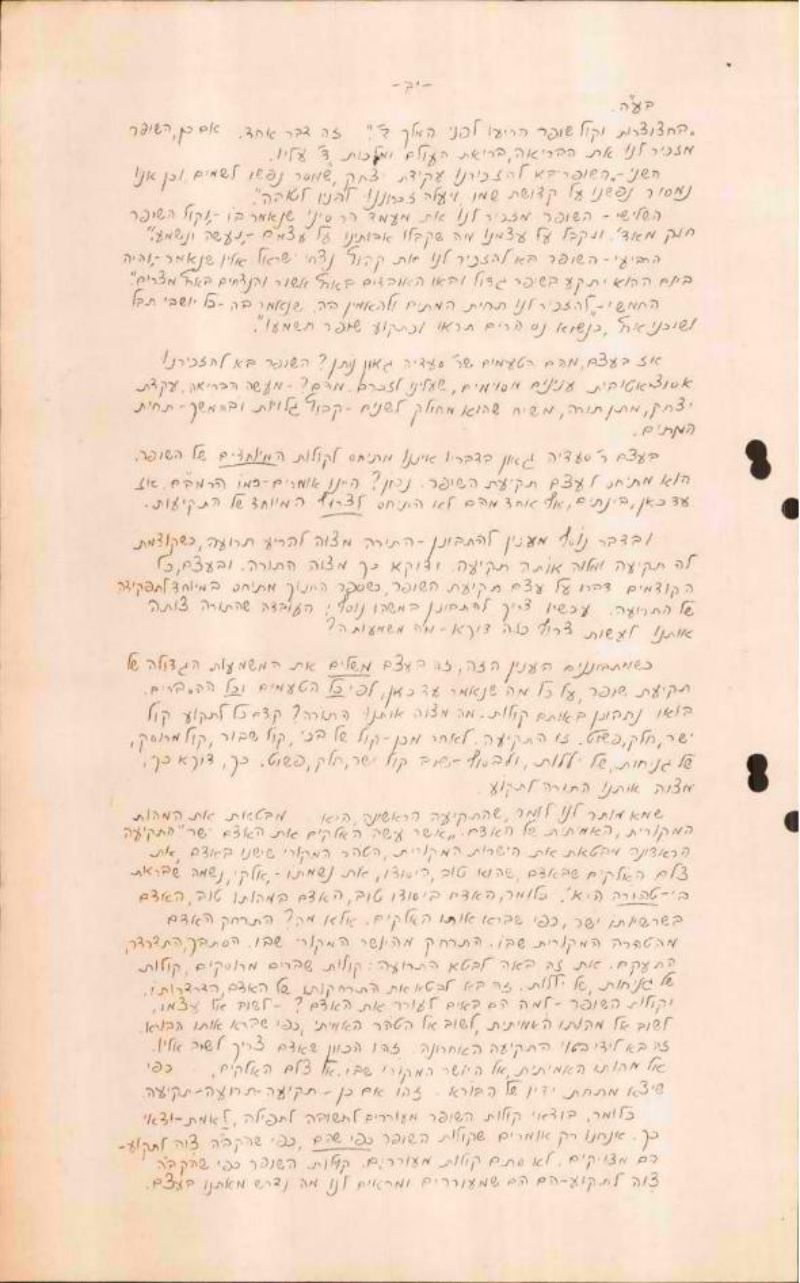 -יב-
בע"ה.
"בחצוצרות וקול שופר הריעו לפני המלך ד'." זה דבר אחד. אם כן, השופר
מזכיר לנו את הבריאה, בריאת העולם ומלכות ד' עליו.
השני - "השופר בא להזכירנו עקידת יצחק, שמסר נפשו לשמים, וכן אנו
נמסור נפשנו על קדושת שמו ויעלה זכרוננו לפניו לטובה".
השלישי - השופר מזכיר לנו את מעמד הר סיני שנאמר בו - "וקול השופר
חזק מאד". ונקבל על עצמנו מה שקבלו אבותינו על עצמם - "נעשה ונשמע".
הרביעי - השופר בא להזכיר לנו את קבוץ נדחי ישראל אליו שנאמר - "והיה
ביום ההוא יתקע בשופר גדול ובאו האובדים בארץ אשור והנדחים בארץ מצרים".
החמשי - "להזכיר לנו תחית המתים ולהאמין בה. שנאמר בה - כל יושבי תבל
ושוכני ארץ, כנשוא נס הרים תראו וכתקוע שופר תשמעו".
אז בעצם, מהם הטעמים שר' סעדיה גאון נותן? השופר בא להזכירנו
אסוציאטיבית ענינים מסוימים, שעלינו לזכרם. מהם? - מעשה הבריאה, עקדת
יצחק, מתן תורה, משיח שהוא מחולק לשנים - קבוץ גלויות ובהמשך - תחית
המתים.
בעצם ר' סעדיה גאון בדבריו איננו מתיחס לקולות המיוחדים של השופר.
הוא מתיחס לעצם תקיעת השופר. נכון? היינו אומרים - כמו הרמב"ם. אז
עד כאן, בינתים, אף אחד מהם לא התיחס לצרוף המיוחד של התקיעות.
ובדבר נוסף מענין להתבונן - התורה מצוה להריע תרועה, כשקודמת
לה תקיעה ומלוה אותה תקיעה. ודוקא כך מצוה התורה. ובעצם, כל
הקודמים דברו על עצם תקיעת השופר, כשספר החנוך מתיחס במיוחד לתפקידה
של התרועה. עכשיו צריך להתבונן במשהו נוסף; העובדה שהתורה צותה
אותנו לעשות צרוף כזה דוקא - מה משמעותה?
כשמתבוננים הענין הזה, זה בעצם משלים את המשמעות הגדולה של
תקיעת שופר, על כל מה שנאמר עד כאן, לפי כל הטעמים וכל ההסברים.
בואו נתבונן באותם קולות. מה מצוה אותנו התורה? קדם כל לתקוע קול
ישר, חלק, פשוט. זו התקיעה. לאחר מכן - קול של בכי, קול שבור, קול מרוסק,
של גניחות, של יללות, ולבסוף - שוב קול ישר, חלק, פשוט. כך, דוקא כך,
מצוה אותנו התורה לתקוע.
שמא מותר לנו לומר, שהתקיעה הראשונה, היא מבטאת את המהות
המקורית, האמיתית של האדם. "אשר עשה האלקים את האדם ישר" התקיעה
הראשונה מבטאת את הישרות המקורית, הטהר המקורי שישנו באדם, את
צלם האלקים שבאדם, שהוא טוב, היסודו, את נשמתו - "אלקי, נשמה שבראת
בי - טהורה היא". כלומר, האדם ביסודו טוב, האדם במהותו טוב, האדם
בשרשיותו ישר, כפי שברא אותו האלקים. אלא מה? התרחק האדם
מהטהרה המקורית שבו. התרחק מהיושר המקורי שבו. הסתבך, התדרדר,
התעקם. את זה באה לבטא התרועה: קולות שברים מרוסקים, קולות
של גניחות, של יללות. זה בא לבטא את התרחקותו של האדם, הדרדרותו.
וקולות השופר - למה הם באים לעורר את האדם? - לשוב אל עצמו,
לשוב אל מהותו האמיתית, לשוב אל הטהר האמיתי, כפי שברא אותו הבורא.
זה בא לידי בטוי התקיעה האחרונה. זהו הכוון שאדם צריך לשוב אליו.
אל מהותו האמיתית, אל היושר המקורי שבו, אל צלם האלקים, כפי
שיצא מתחת ידיו של הבורא. זהו אם כן - תקיעה - תרועה - תקיעה.
כלומר, בודאי קולות השופר מעוררים לתשובה לתפילה, לאמת - ודאי
כך. אנחנו רק אומרים שקולות השופר כפי שהם, כפי שהקב"ה צוה לתקוע -
הם מצויקים. לא סתם קולות מעוררים. קולות השופר כפי שהקב"ה
צוה לתקוע - הם הם שמעוררים ומראים לנו מה נדרש מאתנו בעצם.